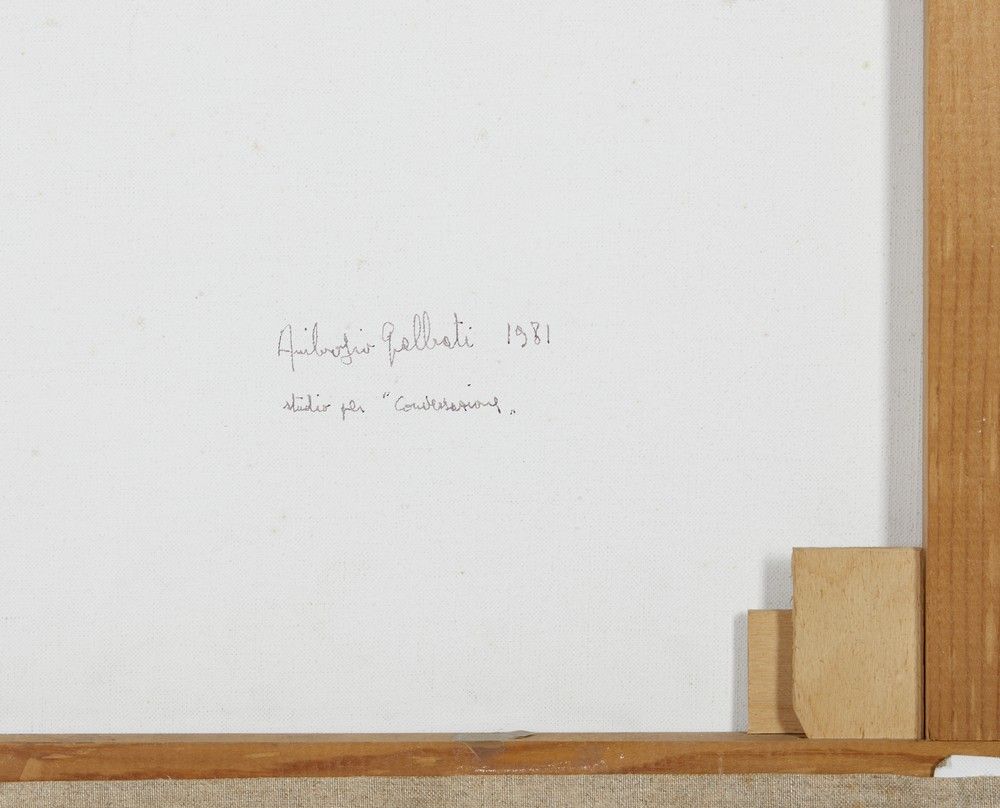 Ambrogio Galbati 1981
studio per "Conversazione"